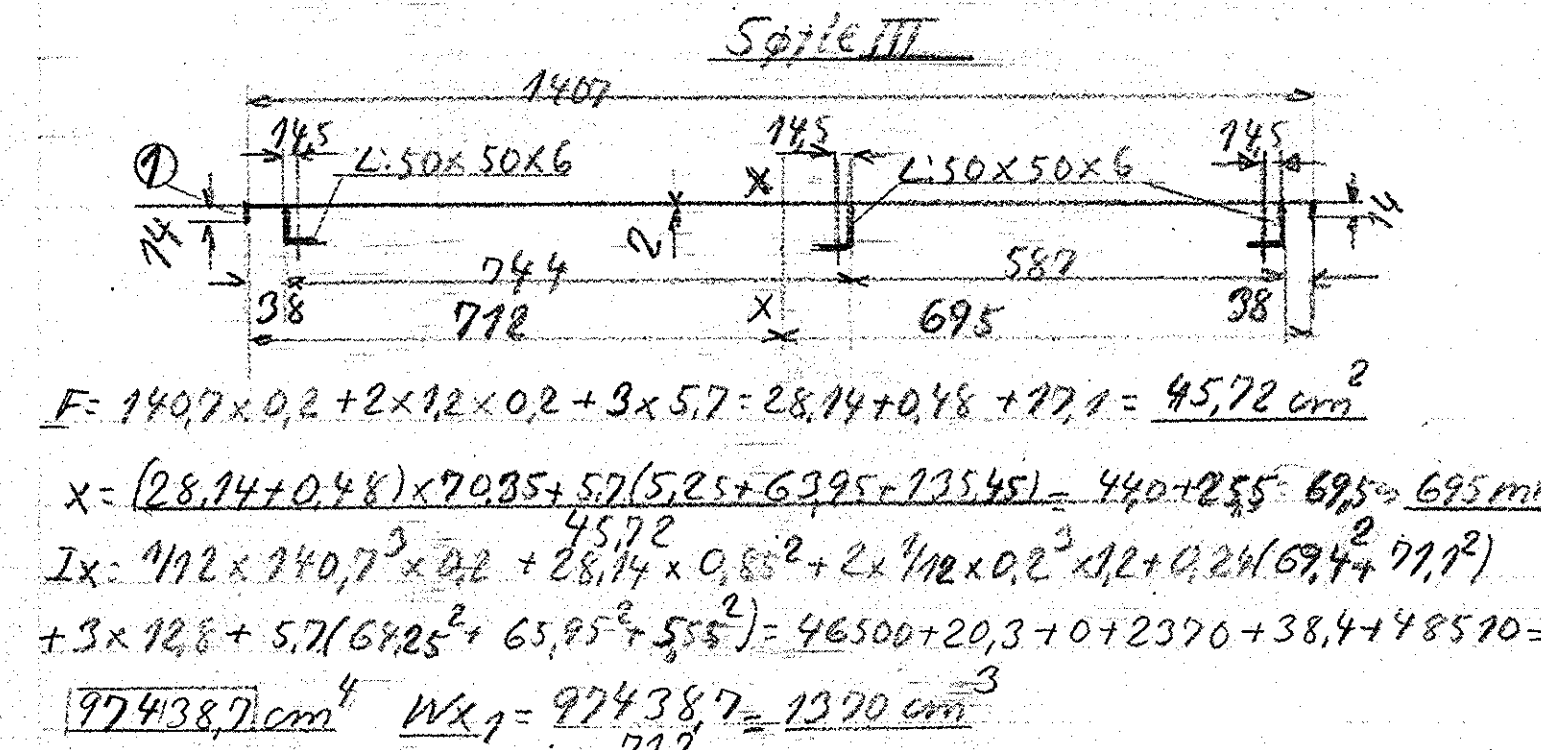 Søjle III
1407
14,5 14,5 14,5
1 L:50x50x6 x L:50x50x6
14 2 14
744 587
38 712 x 695 38
F= 140,7x0,2+2x1,2x0,2+3x5,7=28,14+0,48+17,1= 45,72 cm²
x= (28,14+0,48)x70,35+5,7(5,25+63,95+135,45) = 44,0+25,5= 69,5= 695 m
45,72
Ix= 1/12x140,7³x0,2+28,14x0,85²+2x1/12x0,2³x1,2+0,24(69,4²+71,1²)
+3x12,8+5,7(64,25²+65,95²+5,55²)=46500+20,3+0+2370+38,4+48510=
97438,7 cm⁴ Wx1= 97438,7 = 1370 cm³
71,2